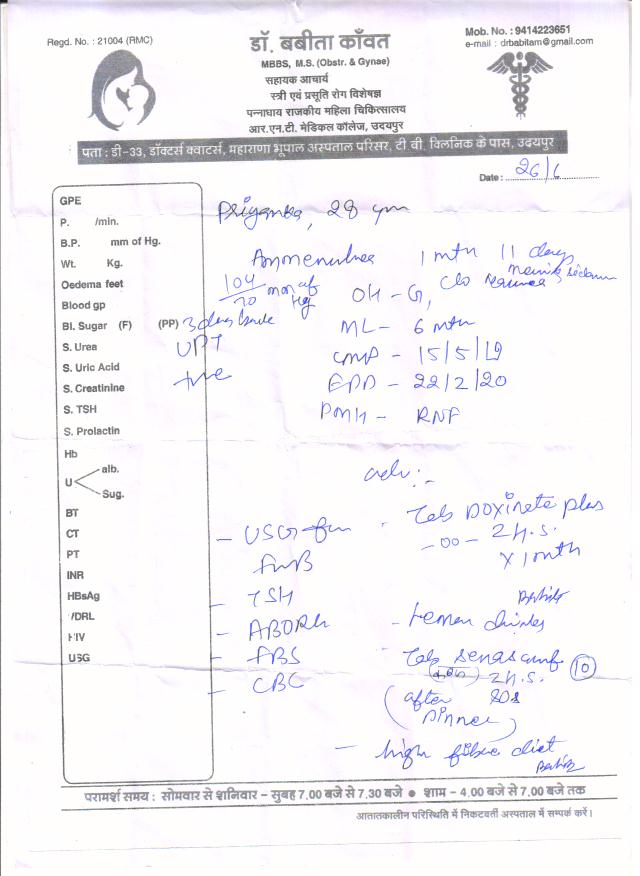 Regd. No. : 21004 (RMC)
Mob. No. : 9414223651
e-mail : drbabitam@gmail.com
डॉ. बबीता काँवत
MBBS, M.S. (Obstr. & Gynae)
सहायक आचार्य
स्त्री एवं प्रसूति रोग विशेषज्ञ
पन्नाधाय राजकीय महिला चिकित्सालय
आर.एन.टी. मेडिकल कॉलेज, उदयपुर
पता : डी-33, डॉक्टर्स क्वाटर्स, महाराणा भूपाल अस्पताल परिसर, टी वी. क्लिनिक के पास, उदयपुर
Date : 26/6
GPE
Priyanka, 28 yrs
P. /min.
B.P. mm of Hg.
1 mth 11 days
Wt. Kg.
Oedema feet
104/70 mm of Hg
OH - G1
Blood gp
Bl. Sugar (F) (PP)
3 days back
ML - 6 mth
S. Urea
UPT
LMP - 15/5/19
S. Uric Acid
+ve
EDD - 22/2/20
S. Creatinine
PMH - RNF
S. TSH
S. Prolactin
Hb
adv :-
U alb.
Sug.
BT
Tab Doxinate plus
CT
- USG for
- 00 - 2 H.S.
PT
FHB
x 1 month
INR
HBsAg
- TSH
VDRL
- ABORh
- Lemon drinks
HIV
- FBS
- Tab
10
USG
2 H.S.
- CBC
(after dinner)
- high fibre diet
परामर्श समय : सोमवार से शनिवार – सुबह 7.00 बजे से 7.30 बजे ● शाम – 4.00 बजे से 7.00 बजे तक
आतातकालीन परिस्थिति में निकटवर्ती अस्पताल में सम्पर्क करें।